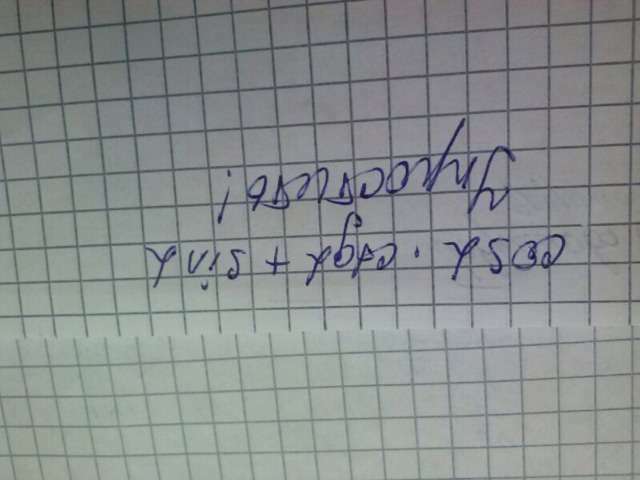 cosα · ctgα + sinα
Упростить!